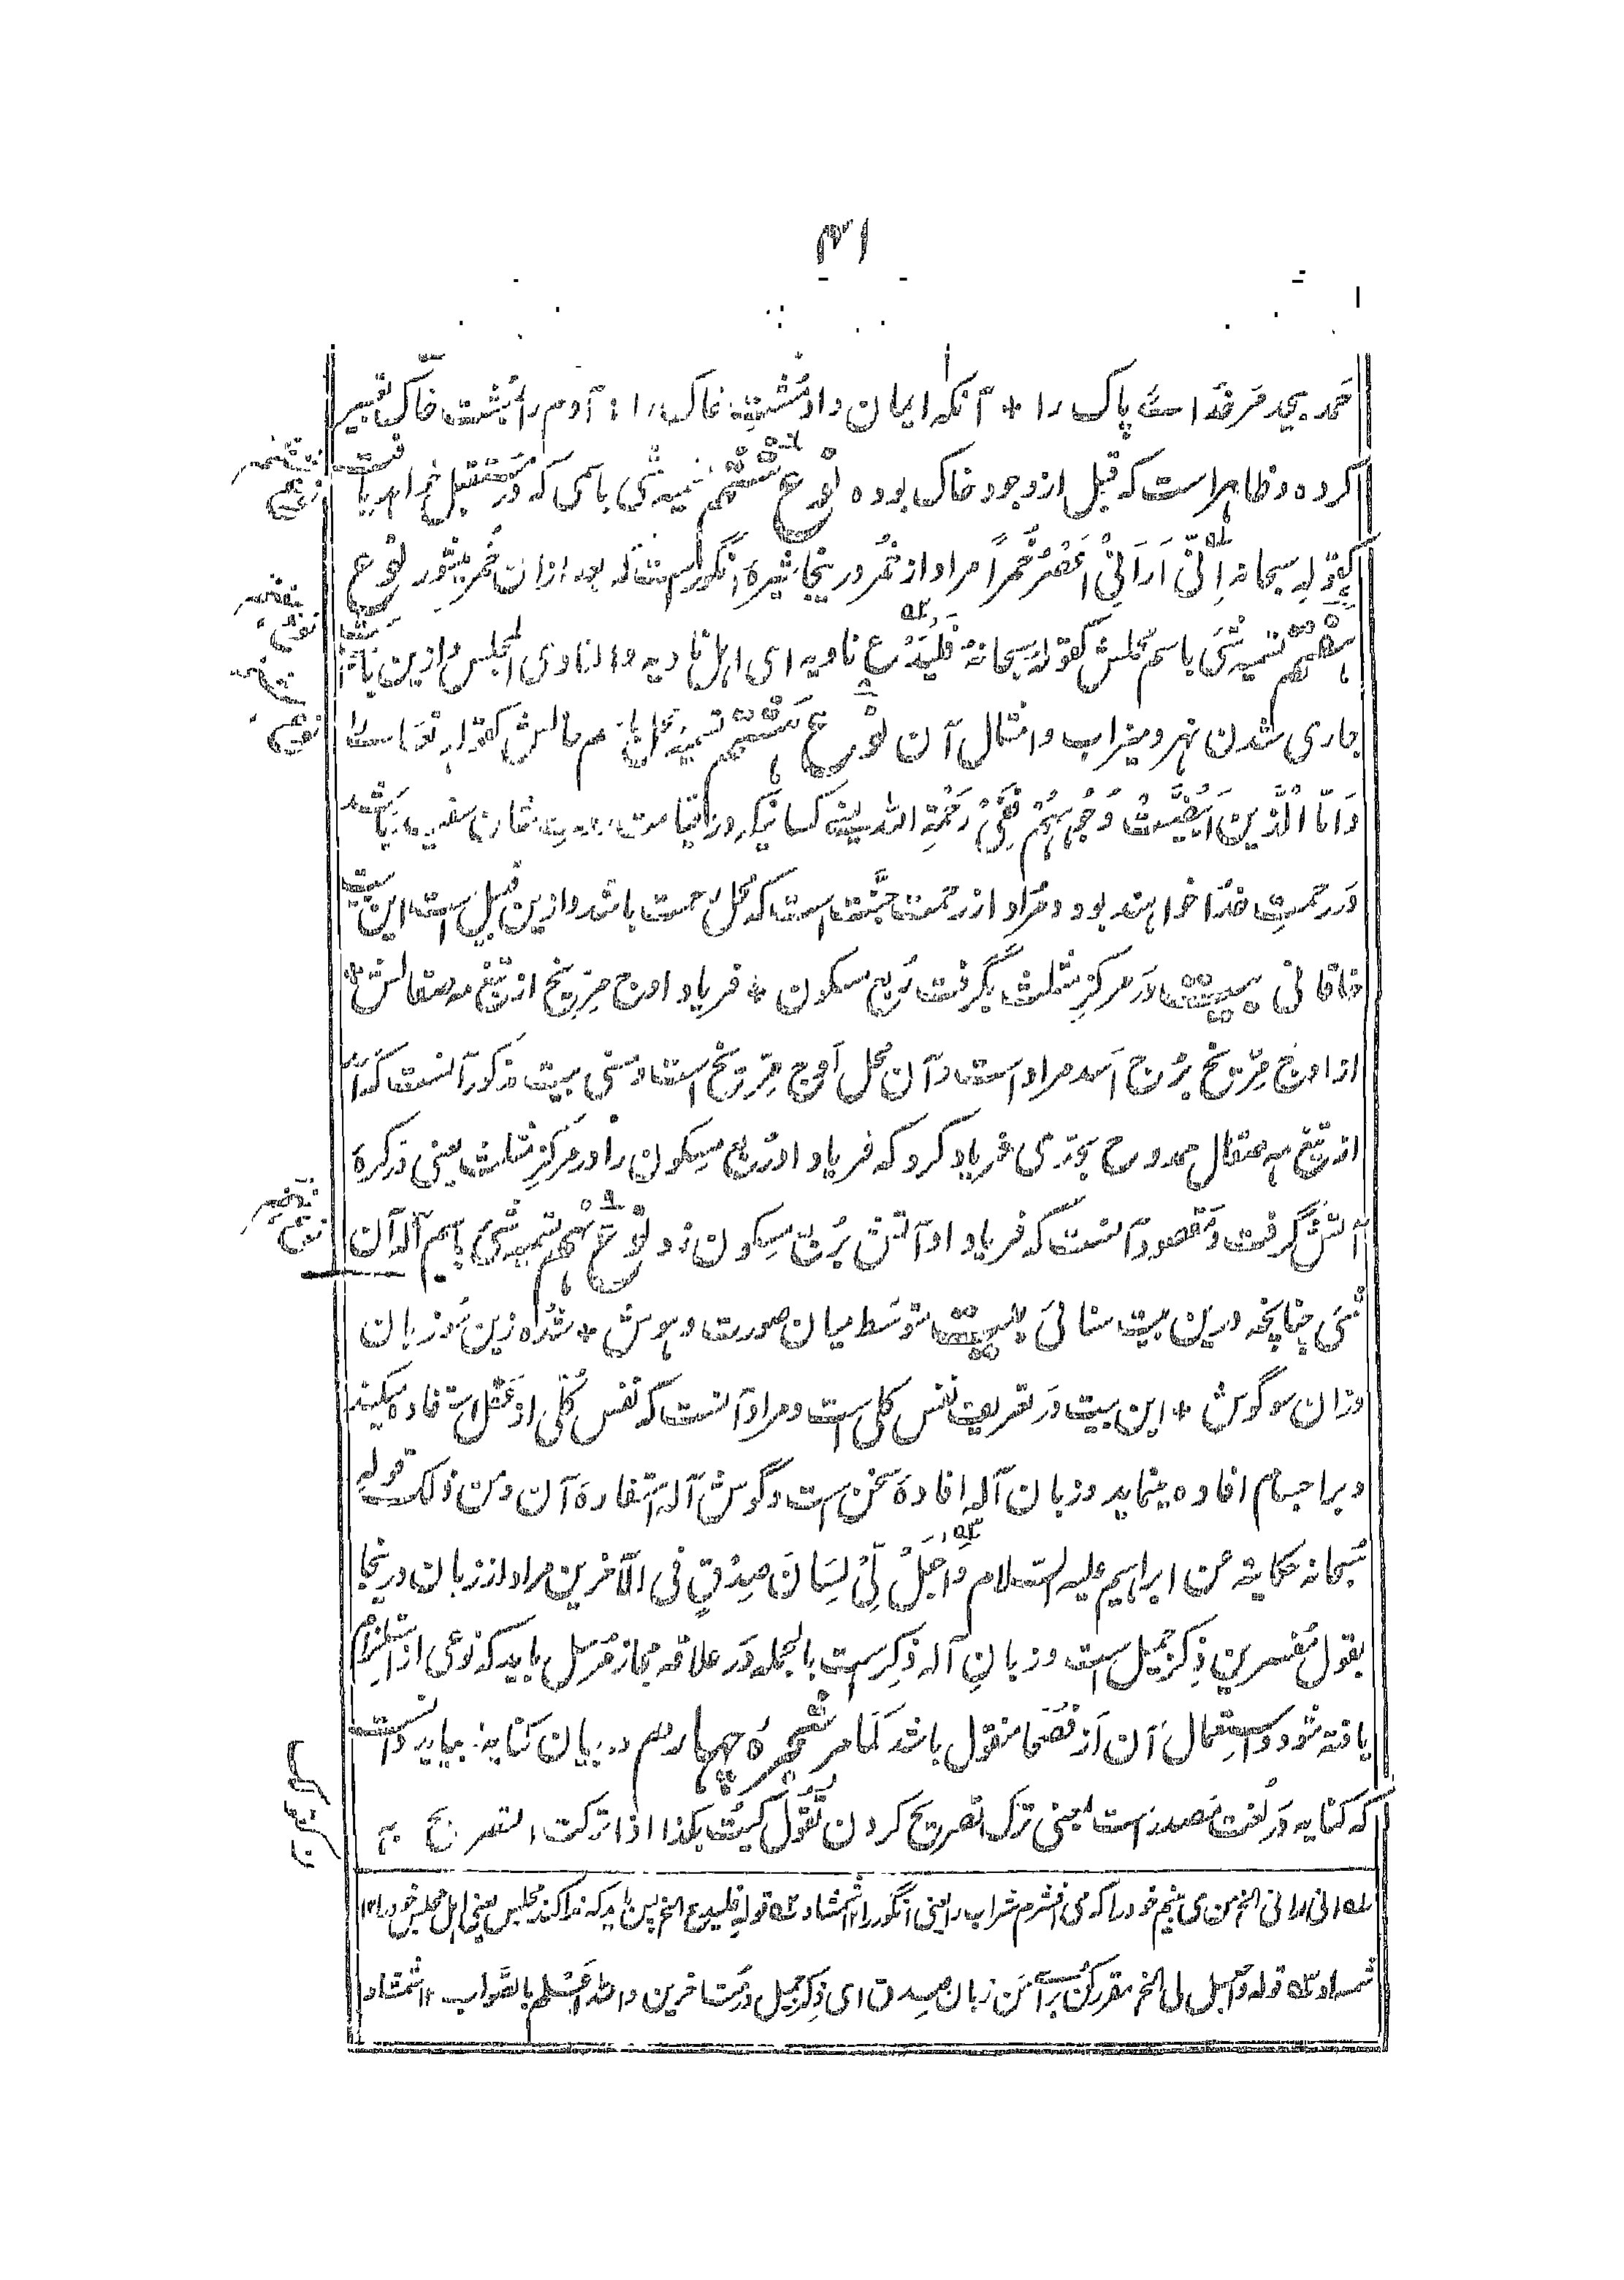 ۴۱
حمد بیحد مر خدای پاک را * آنکه ایمان داد مشت خاک را : آدم را بمشت خاک تعبیر
کرده و ظاهر است که قبل از وجود خاک بوده نوع ششم تسمیه شی باسمی که در مستقبل خواهد یافت
کقوله سبحانه اِنِّی اَرَانِیْ اَعْصِرُ خَمْرًا مراد از خمر درینجا شیرهٔ انگور است که بعد ازان خمر میشود نوع
هفتم تسمیه شی باسم محلش کقوله سبحانه فَلْیَدْعُ نادیه ای اهل نادیه و النادی المجلس و ازین باشد
جاری شدن نهر و میزاب و امثال آن نوع هشتم تسمیه محل باسم حالش کقوله تعالی
وَاَمَّا الَّذِیْنَ ابْیَضَّتْ وُجُوْهُهُمْ فَفِیْ رَحْمَةِ اللّٰه یعنی کسانیکه روز قیامت روی شان سفید باشد
در رحمتِ خدا خواهند بود و مراد از رحمت جنّت است که محل رحمت باشد و ازین قبیل است این بیت
خاقانی بیت در مرکز مثلث بگرفت ربع مسکون * فریاد اوج مریخ از تیغ مه صقالش
از اوج مریخ برج اسد مراد است و آن محل اوج مریخ است و معنی بیت مذکور آنست که اسد
از تیغ مه صقال ممدوح بحدّی فریاد کرد که فریاد او ربع مسکون را در مرکز مثلث یعنی در کرهٔ
آتش گرفت و مقصود آنست که فریاد او آتش برُبع مسکون زد نوع نهم تسمیه شی باسم آلهٔ آن
شی چنانچه درین بیت سنائی بیت متوسط میان صورت و هوش * شده زین سو زبان
وزان سو گوش * این بیت در تعریف نفس کلی است و مراد آنست که نفس کلی از عقل استفاده میکند
و بر اجسام افاده مینماید و زبان آلهٔ افادهٔ سخن است و گوش آلهٔ استفادهٔ آن و من ذلک قوله
سبحانه حکایة عن ابراهیم علیه السلام وَاجْعَلْ لِّیْ لِسَانَ صِدْقٍ فی الآخرین مراد از زبان درینجا
بقول مفسرین ذِکرِ جمیل است و زبانِ آله ذکر است بالجمله در علاقه مجاز مرسل باید که نوعی از استلزام
یافته شود و استعمال آن از فصحا منقول باشد کما مر شجرهٔ چهارم در بیان کنایه بباید دانست
که کنایه در لغت مصدر است بمعنی ترک تصریح کردن تقول کنیت بکذا اذا ترکت التصریح به
له انی ارانی الخ من می بینم خود را که می افشرم شراب را یعنی انگور را ۱۲ شمشاد ۲ه قوله فلیدع الخ پس باید که ندا کند مجلس یعنی اهل مجلس خود را ۱۲
شمشاد ۳ه قوله واجعل لی الخ مقرر کن برای من زبان صدق ای ذکر جمیل در متاخرین والله اعلم بالصّواب ۱۲ شمشاد